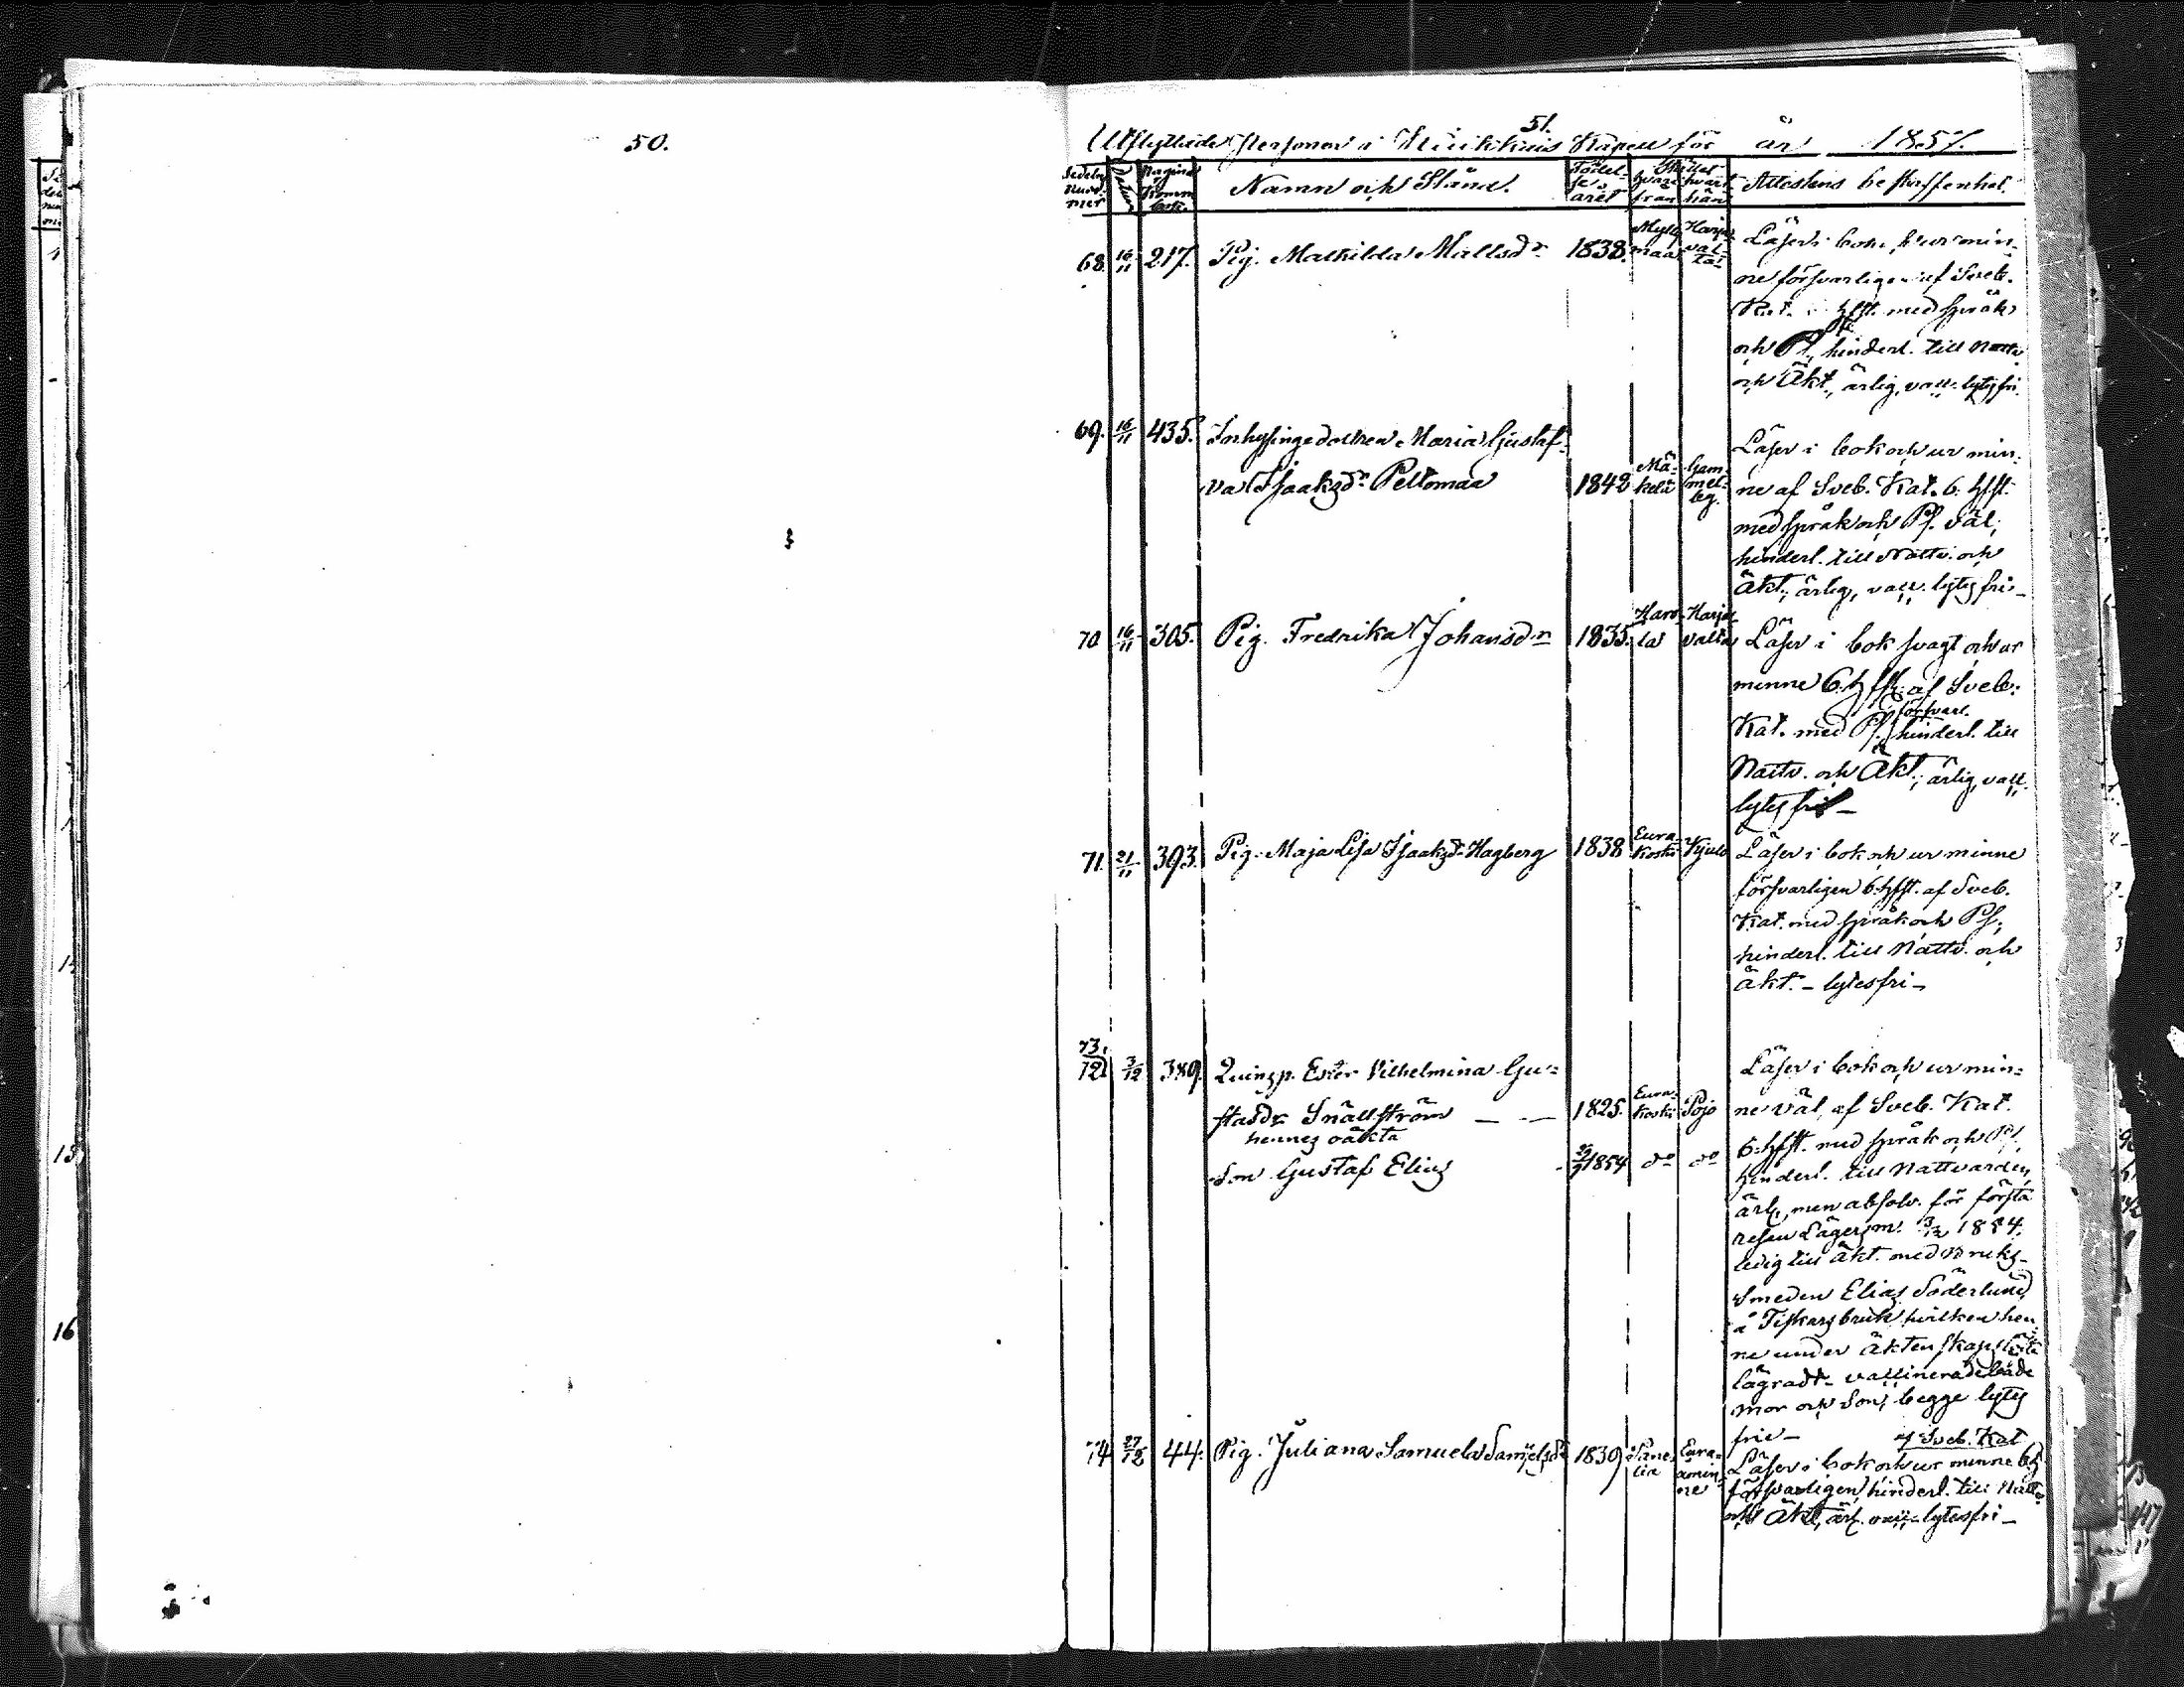 50.
51.
Utflyttade Personer i Kiukkais Kapell för år 1857.
Sedelns Num̄mer Datum Pagina i Komm. bok. Namn och Stånd. Födelse året Stället hvarifrån hvart hän Attestens beskaffenhet.
68. 16/11 217. Pig. Mathilda Mattsdr 1838. maa Harja-val-ta
Läser i bok, o ur min-
ne försvarligen af Sveb.
Kat. hfst. med språk
och Ps, hinderl. till Nattv.
och Äkt., ärlig, vacc. lytesfri.
69. 16/11 435. Inhysinge dottren Maria Gustaf-
va Isaaksdr Peltomaa 1842 Mä-kelä Gam-mel-by.
Läser i bok och ur min-
ne af Sveb. Kat. 6. hfst.
med språk och Ps. väl;
hinderl. till Nattv. och
Äkt.; ärlig, vacc. lytesfri–
70 16/11 305. Pig. Fredrika Johansdr 1835. Haro-la Harja-valta
Läser i bok svagt och ur
minne 6. hfst. af Sveb.
försvarl.
Kat. med Ps. hinderl. till
Nattv. och Äkt.; ärlig, vacc.
lytesfri–
71. 21/11 393. Pig. Maja Lisa Isaaksdr Hagberg 1838 Eura-koski Kjulo
Läser i bok och ur minne
försvarligen 6. hfst. af Sveb.
Kat. med språk och Ps;
hinderl. till Nattv. och
äkt. – lytesfri –
73.
72 3/12 389. Qvinsp. Ester Vilhelmina Gu-
stafsdr Snällström — — 1825. Eura-koski Pojo
hennes oäkta
Son Gustaf Elias 1854 do do
Läser i bok och ur min-
ne väl, af Sveb. Kat.
6. hfst. med språk och Ps.
hinderl. till Nattvarden,
ärl., men absolv. för första
resan Lägersm. 1854.
ledig till äkt. med Bruks-
Smeden Elias Söderlund
å Fiskars bruk, hvilken hen-
ne under äktenskapslöfte
lägradt – vaccinerade både
mor och Son, begge lytes
frie –
74 27/12 44. Pig. Juliana Samuela Samuelsdr 1839 Pane-lia Eura-åmin-ne
af Sveb. Kat
Läser i bok och ur minne 6 h
försvarligen, hinderl. till Nattv.
och Äkt, ärl. vacc. lytesfri –